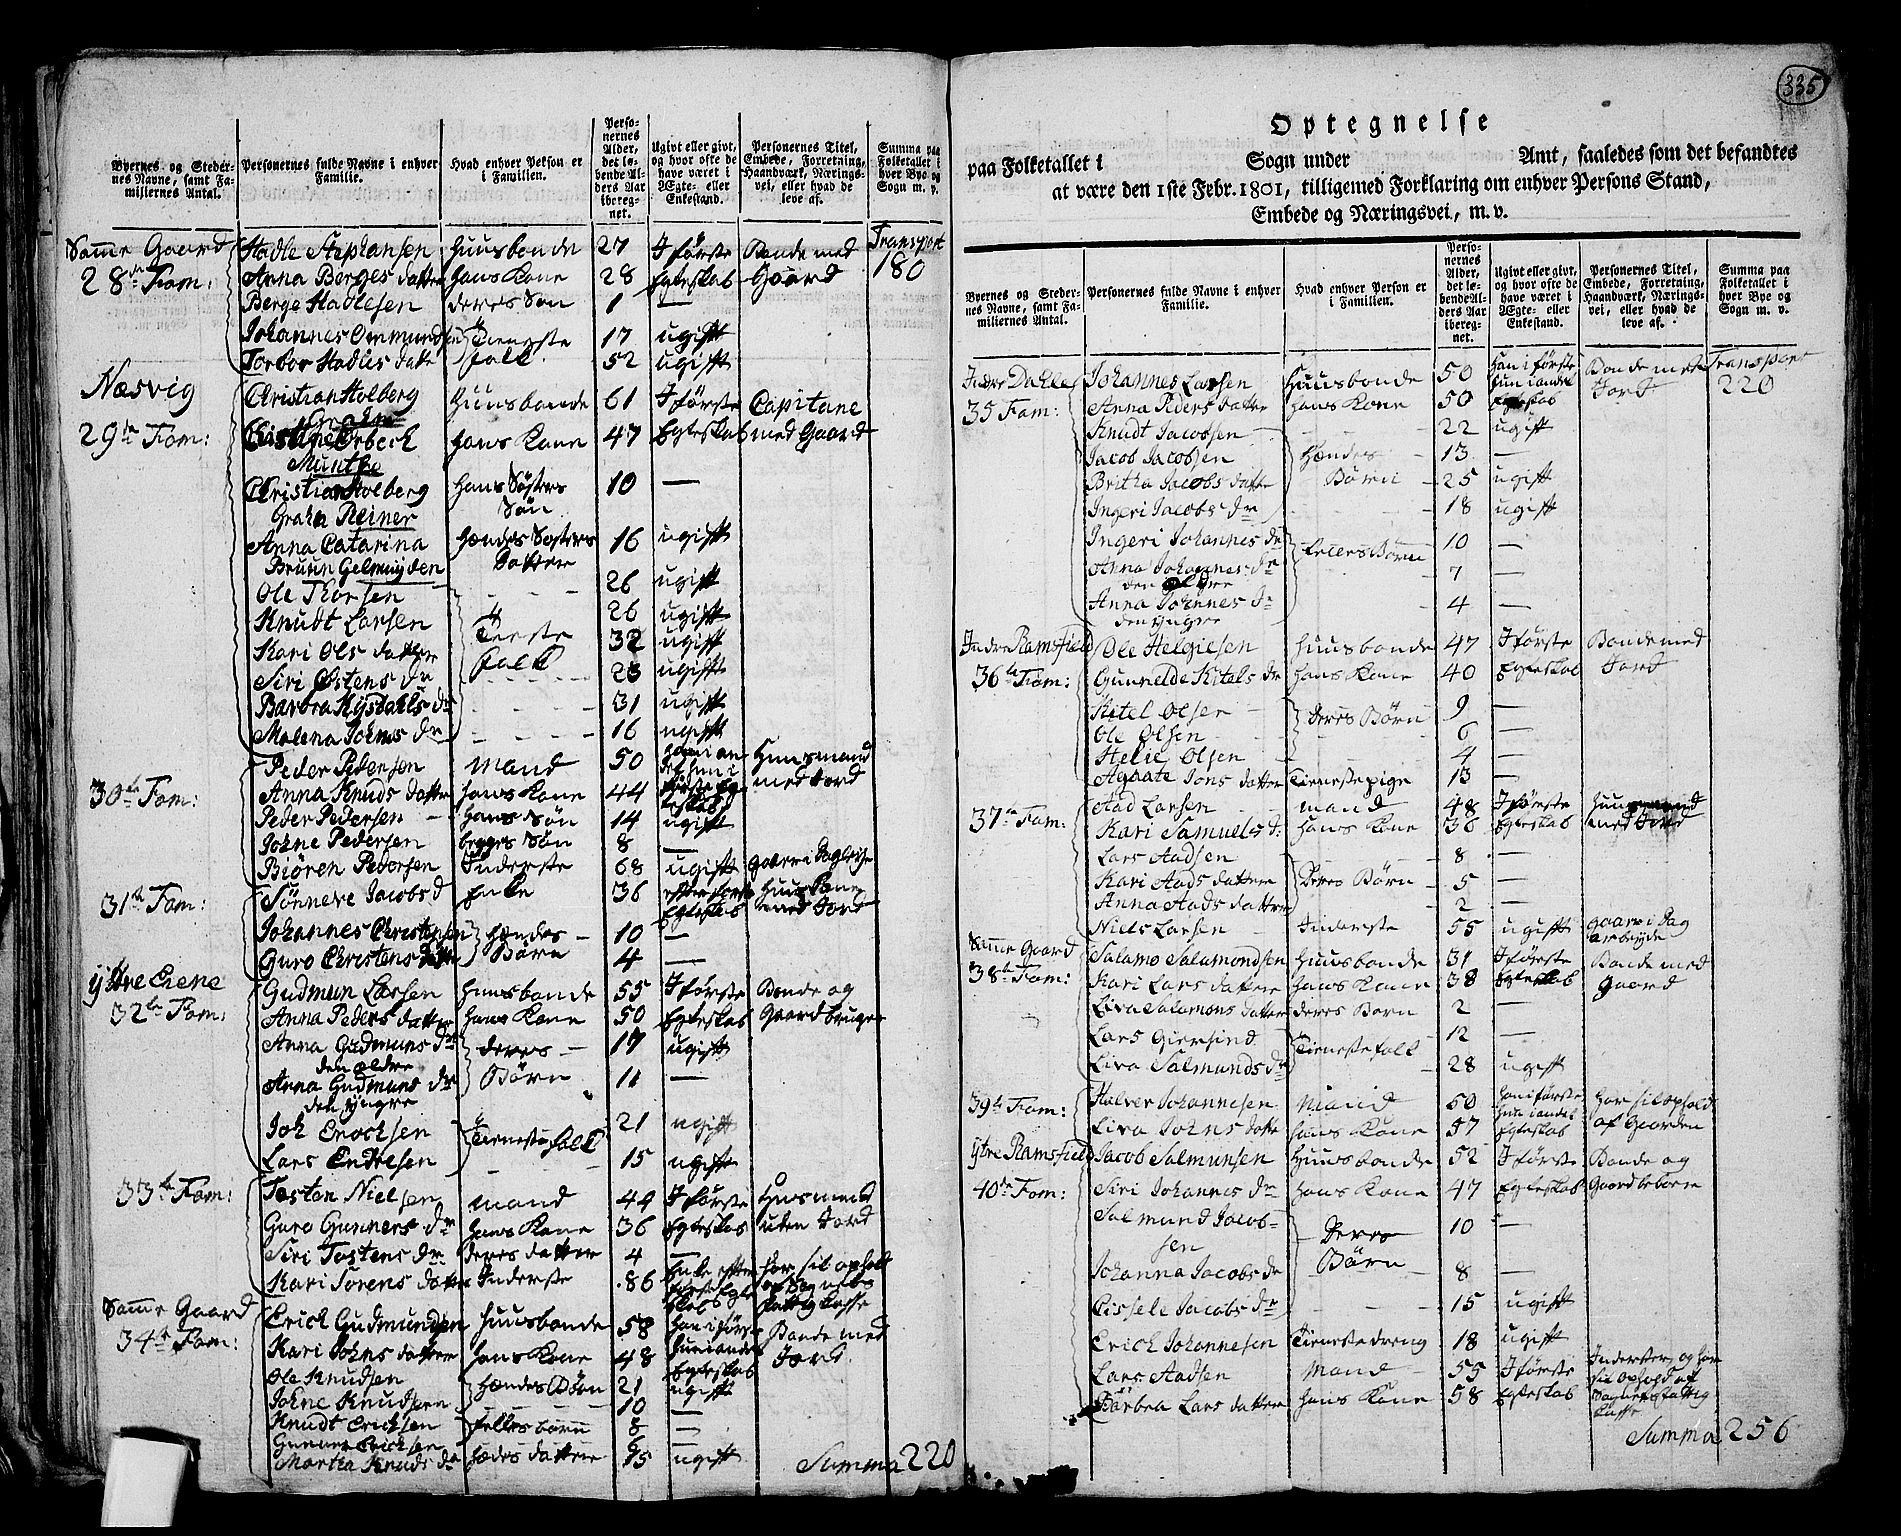 Byernes og Steder-
nes Navne, samt Fa-
miliernes Antal.
Personernes fulde Navne i enhver
Familie.
Hvad enhver Person er
i Familien.
Perso-
nernes
Alder,
det le-
bende Al-
ders Aar
ibereg-
net.
Ugivt eller givt,
og hvor ofte de
have været i
Ægte- eller
Enkestand.
Personernes Titel,
Embede, Forretning,
Haandværk, Nærings-
vei, eller hvad de
leve af.
Summa paa
Folketallet i
hver Bye og
Sogn m. v.
Samme Gaard Hadle Stephansen Huusbonde 27 I første Bonde med Transport
28de Fam: Anna Berges datter hans Kone 28 Egteskab Gaard 180
Berge Hadlesen deres Søn 1 —
Johannes Ommundsen Tieneste 17 ugift
Torbor Hadles datt folk 52 ugift
Næsvig Christian Holberg Huusbonde 61 I første Capitane
29de Fam: Christine Orbech hans Kone 47 Egteskab med Gaard
Munthe
Christian Holberg hans Søsters 10 —
Grahn Reiner Søn
Anna Catarina Hændes Søsters 16 ugift
Bruun Gelmuyden Datter
Ole Thorsen 26 ugift
Knudt Larsen 26 ugift
Kari Ols datter 32 ugift
Siri Østens dr folk 23 ugift
Barbra Kystahls dr 31 ugift
Malena Johns dr 16 ugift
Peder Pedersen mand 50 Huusmand
30te Fam: Anna Knuds datter hans Kone 44 med Jord
Peder Pedersen hans Søn 14 ugift
Johne Pedersen begges Søn 8 —
Biøren Pedersen Inderste 68 ugift
31te Fam: Tønneve Jacobs d Enke 36 efter første
Egteskab med Jord
Johannes Christensen Hændes 10 —
Guro Christens datter Børn 4 —
Ytre Eiene Gudmun Larsen Huusbonde 55 I første Bonde og
32te Fam: Anna Peders datter hans Kone 50 Egteskab Gaardbruger
Anna Gudmuns dr deres 17 ugift
den ældre
Anna Gudmuns dr Børn 11 —
den yngre
Joh Enochsen Tieneste folk 21 ugift
Lars Endresen 15 ugift
33te Fam: Tosten Nielsen mand 44 I første Huusmand
Guro Gunners dr hans Kone 36 Egteskab uden Jord
Siri Tostens dr deres datter 4 —
Kari Sørens datter Inderste 86 Enke efter har sit ophold
første Egte af Sognets
skab fattig Casse
Samme Gaard Erich Gudmundsen Huusbonde 58 Han i førs- Bonde med
34te Fam: Kari Johns datter hans Kone 48 hun i andet Jord
Egteskab
Ole Knudsen Hændes Børn 21 ugift
Johne Knudsen 10 —
Knudt Erichsen fælles børn 8 —
Gunner Erichsen 6 —
Martha Knuds dr hændes datter 15 ugift
Summa 220
335
Optegnelse
paa Folketallet i Sogn under Amt, saaledes som det befandtes
at være den 1ste Febr. 1801, tilligemed Forklaring om enhver Persons Stand,
Embede og Næringsvei, m. v.
Byernes og Steder-
nes Navne, samt Fa-
miliernes Antal.
Personernes fulde Navne i enhver
Familie.
Hvad enhver Person er
i Familien.
Perso-
nernes
Alder,
det le-
bende Al-
ders Aar
ibereg-
net.
Ugivt eller givt,
og hvor ofte de
have været i
Ægte- eller
Enkestand.
Personernes Titel,
Embede, Forretning,
Haandværk, Nærings-
vei, eller hvad de
leve af.
Summa paa
Folketallet i
hver Bye og
Sogn m. v.
Indre Dahle Johannes Larsen Huusbonde 50 Han i første Bonde med Transport
hun i andet Jord 220
35 Fam: Anna Peders datter hans Kone 50 Egteskab
Knudt Jacobsen 22 ugift
Jacob Jacobsen Hændes 13 —
Britha Jacobs datter Børn 25 ugift
Ingeri Jacobs dr 18 ugift
Ingeri Johannes dr Børn 10 —
Anna Johannes dr 7 —
den ældre
Anna Johnnes dr 4 —
den yngre
Indre Ramsfield Ole Helgiesen Huusbonde 47 I første Bonde med
36te Fam: Gunnelde Kitels dr hans Kone 40 Egteskab Jord
Kitel Olsen deres Børn 9 —
Ole Olsen 6 —
Helie Olsen 4 —
Agaate Jons datter Tienestepige 13 —
37te Fam: Aad Larsen mand 48 I første
Kari Samuels dr hans Kone 36 Egteskab med Jord
Lars Aadsen 8 —
Kari Aads datter Deres Børn 5 —
Anna Aads datter 2 —
Niels Larsen Inderste 55 ugift gaaer i Dag
arbeyde
Samme Gaard Salamo Salamondsen Huusbonde 31 I første Bonde med
38te Fam: Kari Lars datter hans Kone 38 Egteskab Gaard
Liva Salamons datter deres Børn 2 —
Lars Giersind Tienestefolk 12 —
Liva Salmunds dr 28 ugift
39te Fam: Halver Johannesen Mand 50 Han i første har sit ophold
hun i andet
Liva Johns datter hans Kone 57 Egteskab af Gaarden
Ytre Ramsfield Jacob Salmunsen Huusbonde 52 I første Bonde og
40de Fam: Siri Johannes dr hans Kone 47 Egteskab Gaardbeboere
Salmund Jacob- Deres 10 —
sen
Johanna Jacobs dr Børn 8 —
Cissele Jacobs dr 15 ugift
Erich Johannesen Tienestedreng 18 ugift
Lars Aadsen mand 55 I første Inderster og har
sit ophold af
Barbra Lars datter hans Kone 58 Egteskab Sognets fattig
Casse
Summa 256